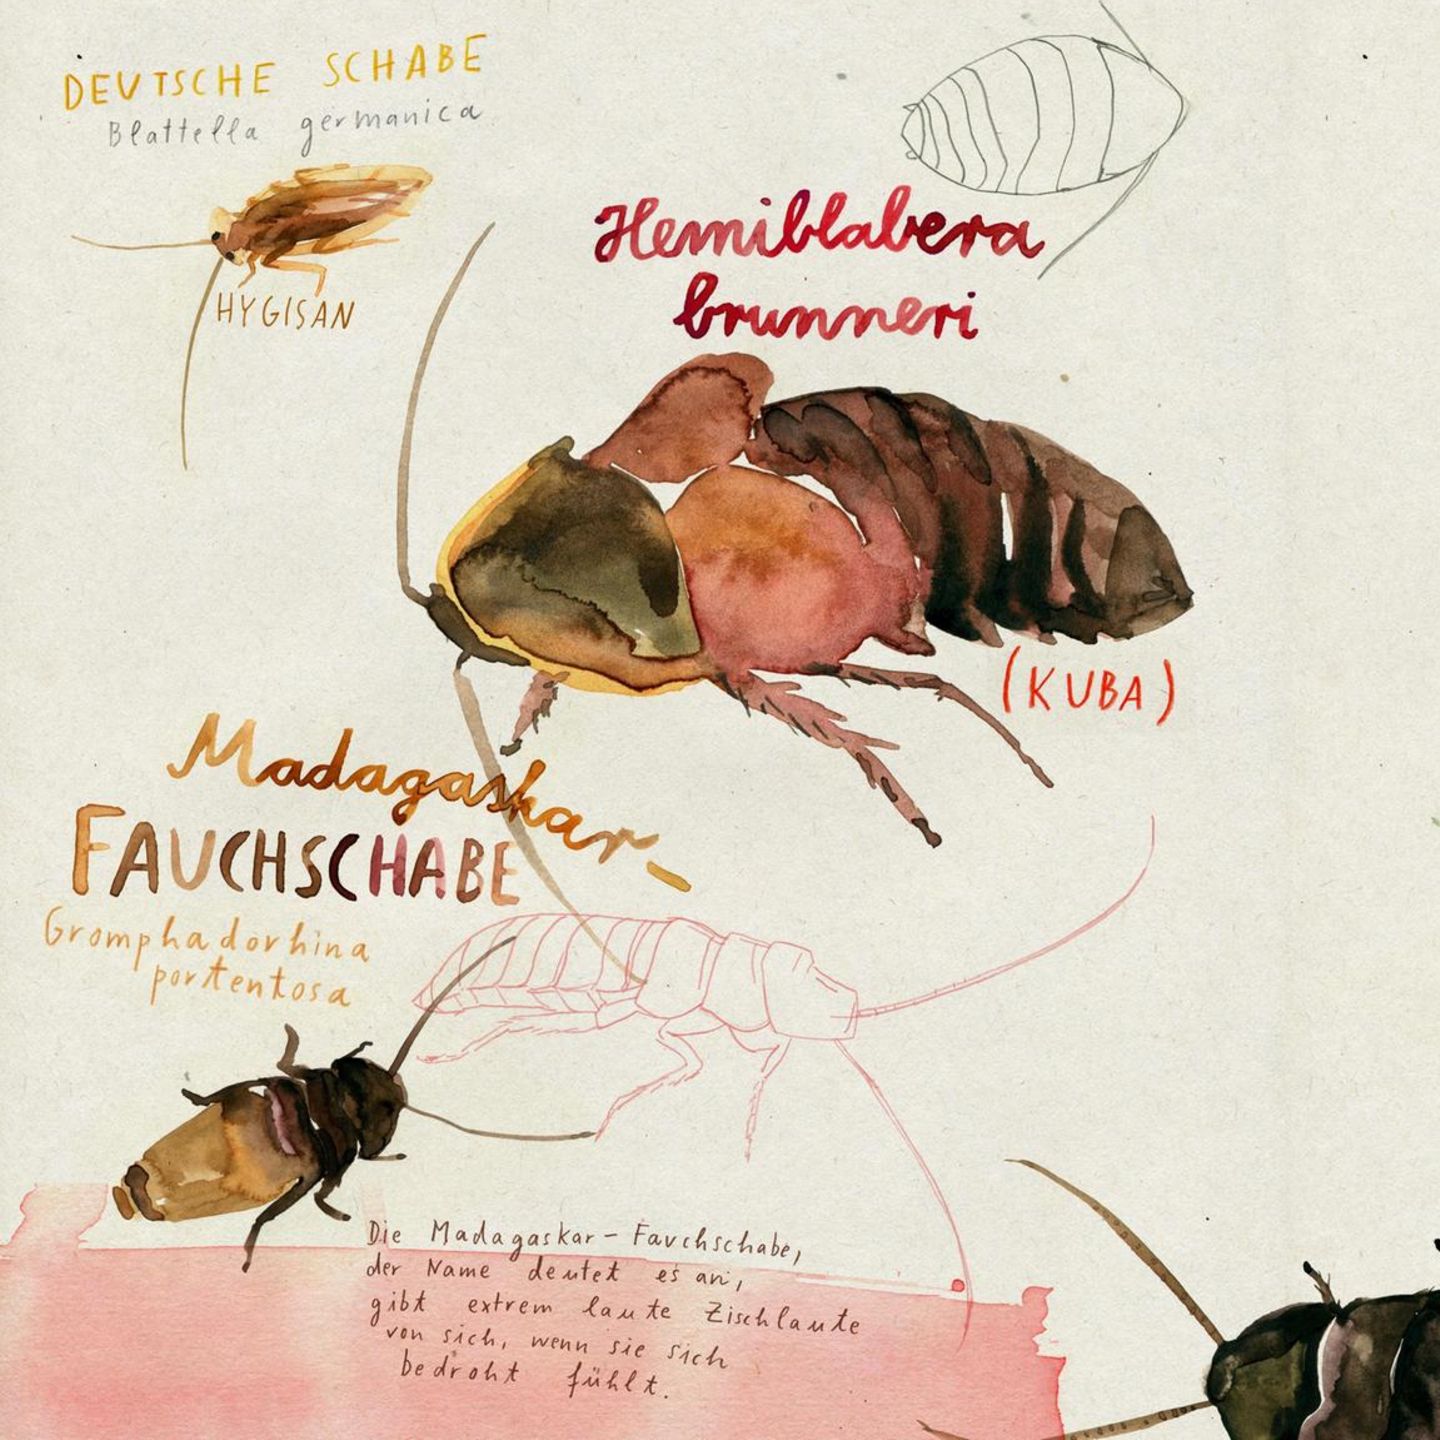 DEUTSCHE SCHABE
Blattella germanica
HYGISAN
Hemiblabera
brunneri
(KUBA)
Madagaskar-
FAUCHSCHABE
Gromphadorhina
portentosa
Die Madagaskar-Fauchschabe,
der Name deutet es an,
gibt extrem laute Zischlaute
von sich, wenn sie sich
bedroht fühlt.